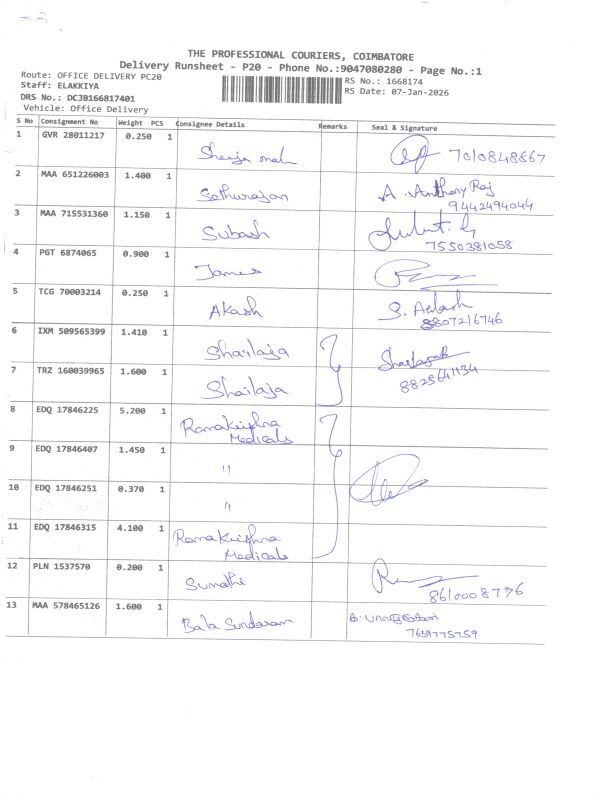 THE PROFESSIONAL COURIERS, COIMBATORE
Delivery Runsheet - P20 - Phone No.:9047080280 - Page No.:1
Route: OFFICE DELIVERY PC20
RS No.: 1668174
Staff: ELAKKIYA
RS Date: 07-Jan-2026
DRS No.: DCJB166817401
Vehicle: Office Delivery
S No Consignment No Weight PCS Consignee Details Remarks Seal & Signature
1 GVR 28011217 0.250 1 7010848667
2 MAA 651226003 1.400 1 Sathurajan A. Anthony Raj
9442494044
3 MAA 715531360 1.150 1 Subash
7550381058
4 PGT 6874065 0.900 1 James
5 TCG 70003214 0.250 1 Akash S. Aakash
8807216746
6 IXM 509565399 1.410 1 Shailaja
7 TRZ 160039965 1.600 1 Shailaja 8825641134
8 EDQ 17846225 5.200 1 Ramakrishna
Medicals
9 EDQ 17846407 1.450 1 "
10 EDQ 17846251 0.370 1 "
11 EDQ 17846315 4.100 1 Ramakrishna
Medicals
12 PLN 1537570 0.200 1 Sumathi
8610008796
13 MAA 578465126 1.600 1 Bala Sundaram
7639775759